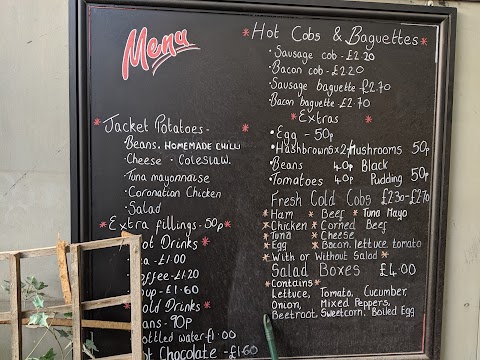 Menu
*Jacket Potatoes-*
·Beans. HOMEMADE CHILLI
·Cheese · Coleslaw.
·Tuna mayonnaise
·Coronation Chicken
·Salad
*Extra fillings-50p*
Hot Drinks*
-£1.00
offee-£1.20
oup-£1.60
old Drinks*
ans-90p
ottled water £1.00
ot Chocolate -£1.60
*Hot Cobs & Baguettes*
·Sausage cob-£2.20
·Bacon cob-£2.20
·Sausage baguette £2.70
·Bacon baguette-£2.70
*Extras*
·Egg - 50p
·Hashbrowns x2 Mushrooms 50p
·Beans 40p Black
·Tomatoes 40p Pudding 50p
Fresh Cold Cobs £2.30-£2.70
*Ham *Beef *Tuna Mayo
*Chicken *Corned Beef
*Tuna *Cheese
*Egg *Bacon, lettuce tomato
*With or Without Salad*
Salad Boxes £4.00
*Contains*
Lettuce, Tomato, Cucumber,
Onion, Mixed Peppers,
Beetroot Sweetcorn, Boiled Egg